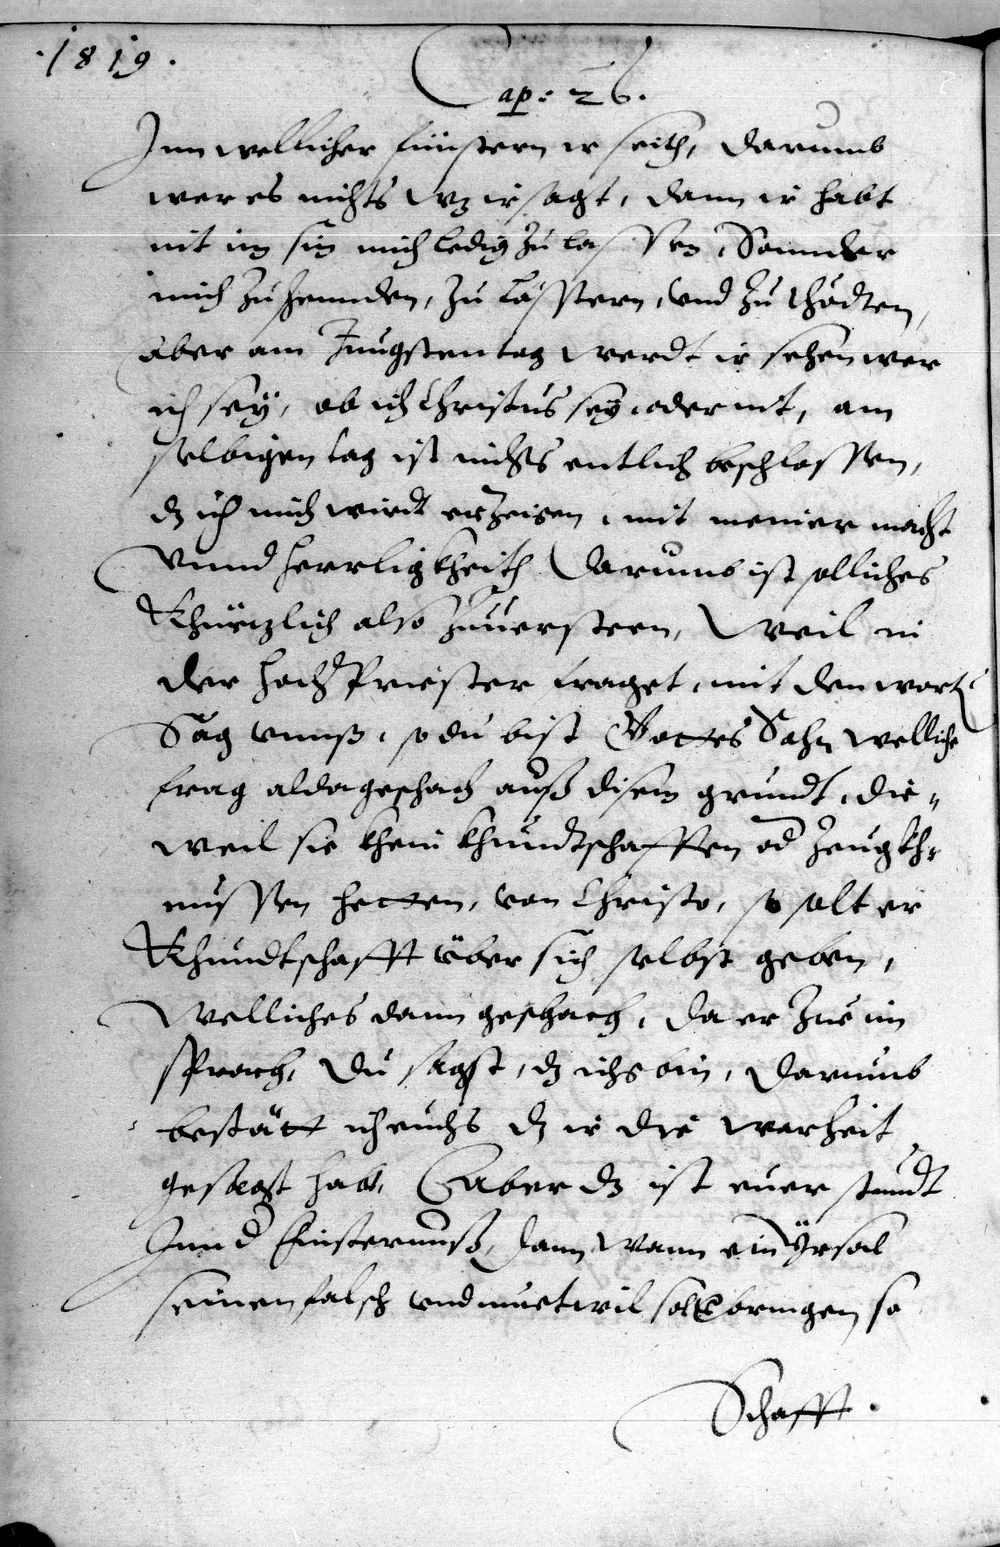 .1819.
Cap: 26.
Inn wellicher finstern ir seith, darumb
wer es nichts wz ir sagt, dann ir habt
nit im sin mich ledig zu lassen, Sonnder
mich zu henden, zu lästern, vnd zu thödten,
aber am Jungsten tag werdt ir sehen wer
ich sey, ob ich Christus sey oder nit, am
selbigen tag ist nichts entlich beschlossen,
dz ich mich wirdt erzeigen, mit meiner macht
Vnnd herrligkheith Darumb ist solliches
Khürzlich also zuuersteen, Weil in
der hoch Priester fraget, mit den wortt
Sag vnnß, so du bist Gottes Sohn welliche
frag alda geschach auß disem grundt, die-
weil sie khein khundtschafften od zeugkh-
nussen hetten, von Christo, so solt er
Khundtschafft über sich selbst geben,
Welliches dann geschach, da er zue im
sprach, du sagst, dz ichs bin, Darumb
bestätt ich euchs dz ir die warheit
gesagt habt, Aber dz ist euer stundt
Inn d finsternuß, dann wann ein Irsal
seinen falsch vnd muetwil sol bringen so
Schafft.